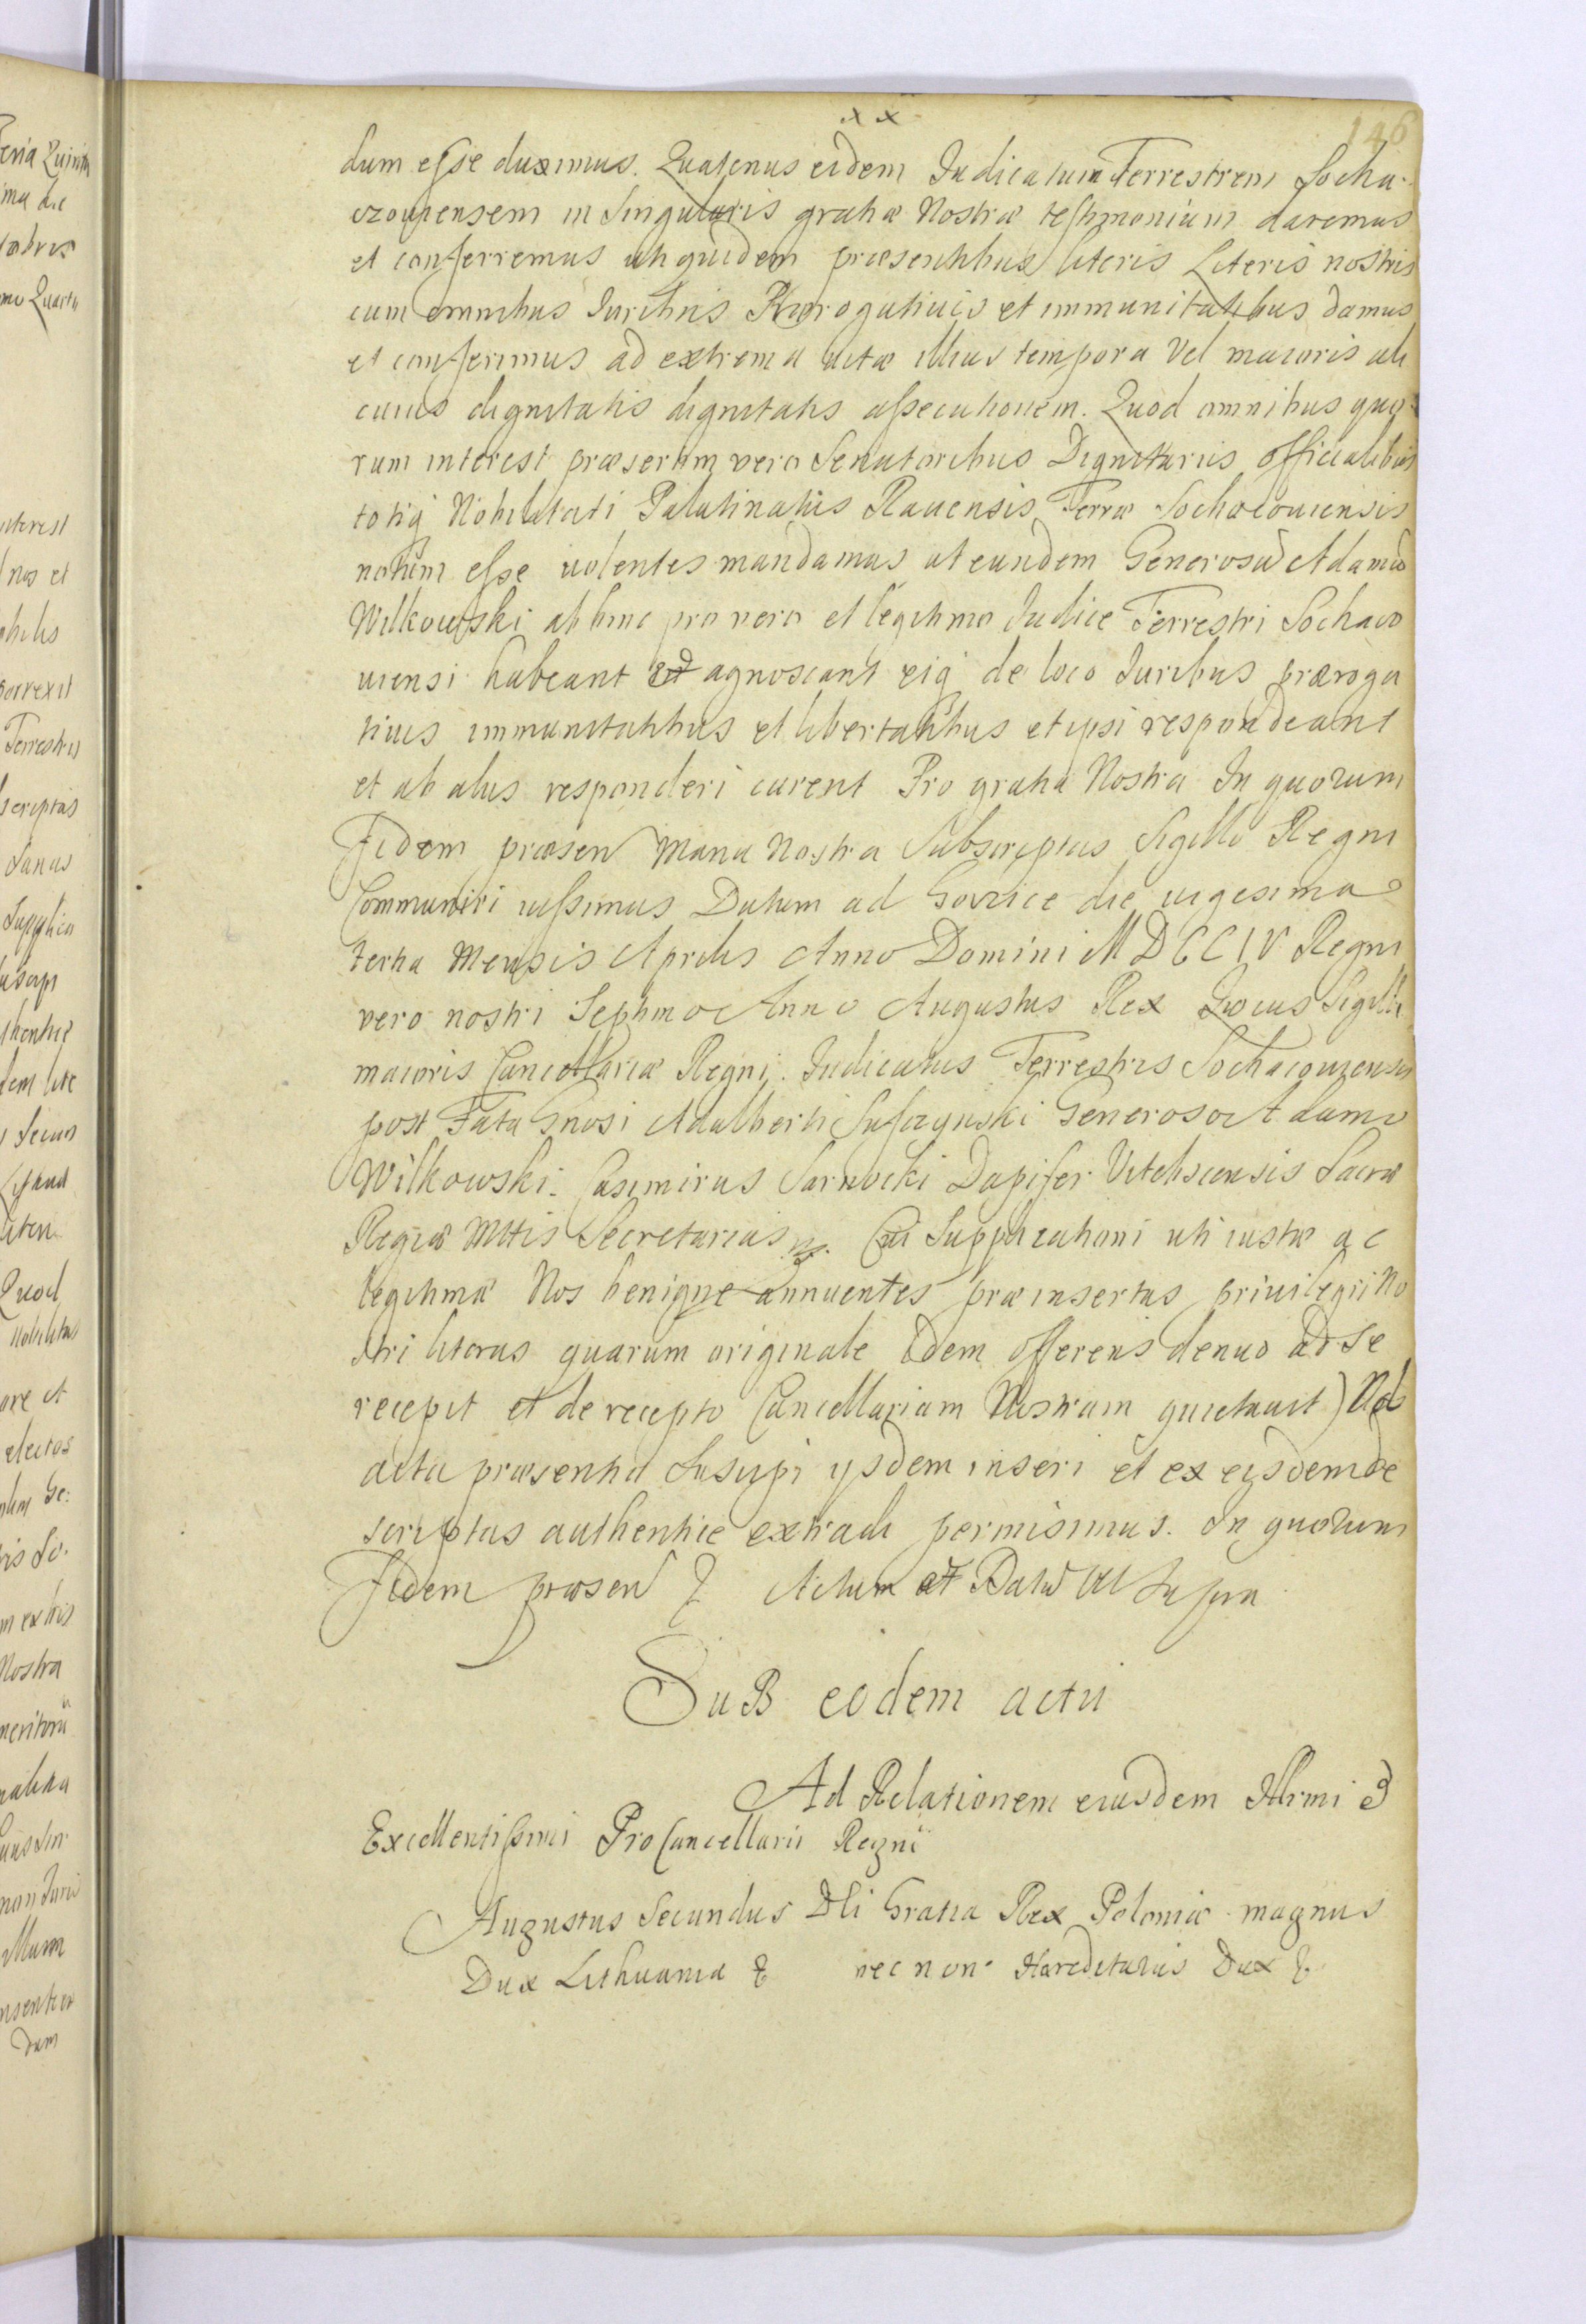 xx
146
dum esse duximus. Quatenus eidem Judicatum Terrestrem Socha-
czouiensem in Singularis gratiæ Nostræ testimonium daremus
et conferremus uti quidem præsentibus literis Literis nostris
cum omnibus Juribus Prærogatiuis et immunitatibus damus
et conferimus ad extrema uitæ illius tempora Vel maioris ali
cuius dignitatis dignitatis assecutionem. Quod omnibus quo-
rum interest præsertim vero Senatoribus Dignitariis Officialibus
totiq Nobilitati Palatinatus Rauensis Terræ Sochacouiensis
notum esse uolentes mandamus ut eundem Generosū Adamū
Wilkowski abhinc pro vero et legitimo Judice Terrestri Sochaco
uiensi habeant et agnoscant eiq de loco Juribus præroga
tiuis immunitatibus et libertatibus et ipsi respondeant
et ab aliis responderi curent Pro gratia Nostra In quorum
Fidem præsen Manu Nostra Subscriptas Sigillo Regni
Communiri iussimus Datum ad Gorzice die uigesima
tertia Mensis Aprilis Anno Domini MDCCIV Regni
vero nostri Septimo Anno Augustus Rex Locus Sigilli
maioris Cancellariæ Regni. Judicatus Terrestris Sochacouiensis
post Fata Gnosi Adalberti Suszynski Generoso Adamo
Wilkowski. Casimirus Sarnocki Dapifer Vitebscensis Sacræ
Regiæ Mttis Secretarius Cui Supplicationi uti iustæ ac
legitimæ Nos benigne annuentes præinsertas priuilegii No
stri literas quarum originale idem Offerens denuo ad se
recepit et de recepto Cancellariam Nostram quietauit) Ad
acta præsentia Suscipi ysdem inseri et ex eisdem de
scriptas authentice extradi permisimus. In quorum
Fidem præsen & Actum et Datū ut Supra
Sub eodem actu
Ad Relationem eiusdem Illrmi &
Excellentissimi ProCancellarii Regni
Augustus Secundus DEi Gratia Rex Poloniæ magnus
Dux Lithuaniæ & nec non Hæreditarius Dux &